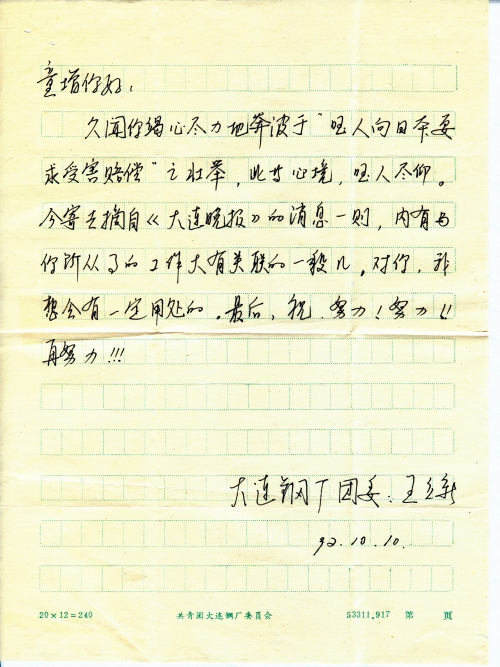 童增你好：
久闻你竭心尽力地奔波于“民人向日本要
求受害赔偿”之壮举，此等心境，民人尽仰。
今寄去摘自《大连晚报》的消息一则，内有与
你所从事的工作大有关联的一段儿。对你，我
想会有一定用处的。最后，祝努力！努力！！
再努力！！！
大连钢厂团委：王立新
92.10.10.
20×12=240 共青团大连钢厂委员会 53311.917 第 页